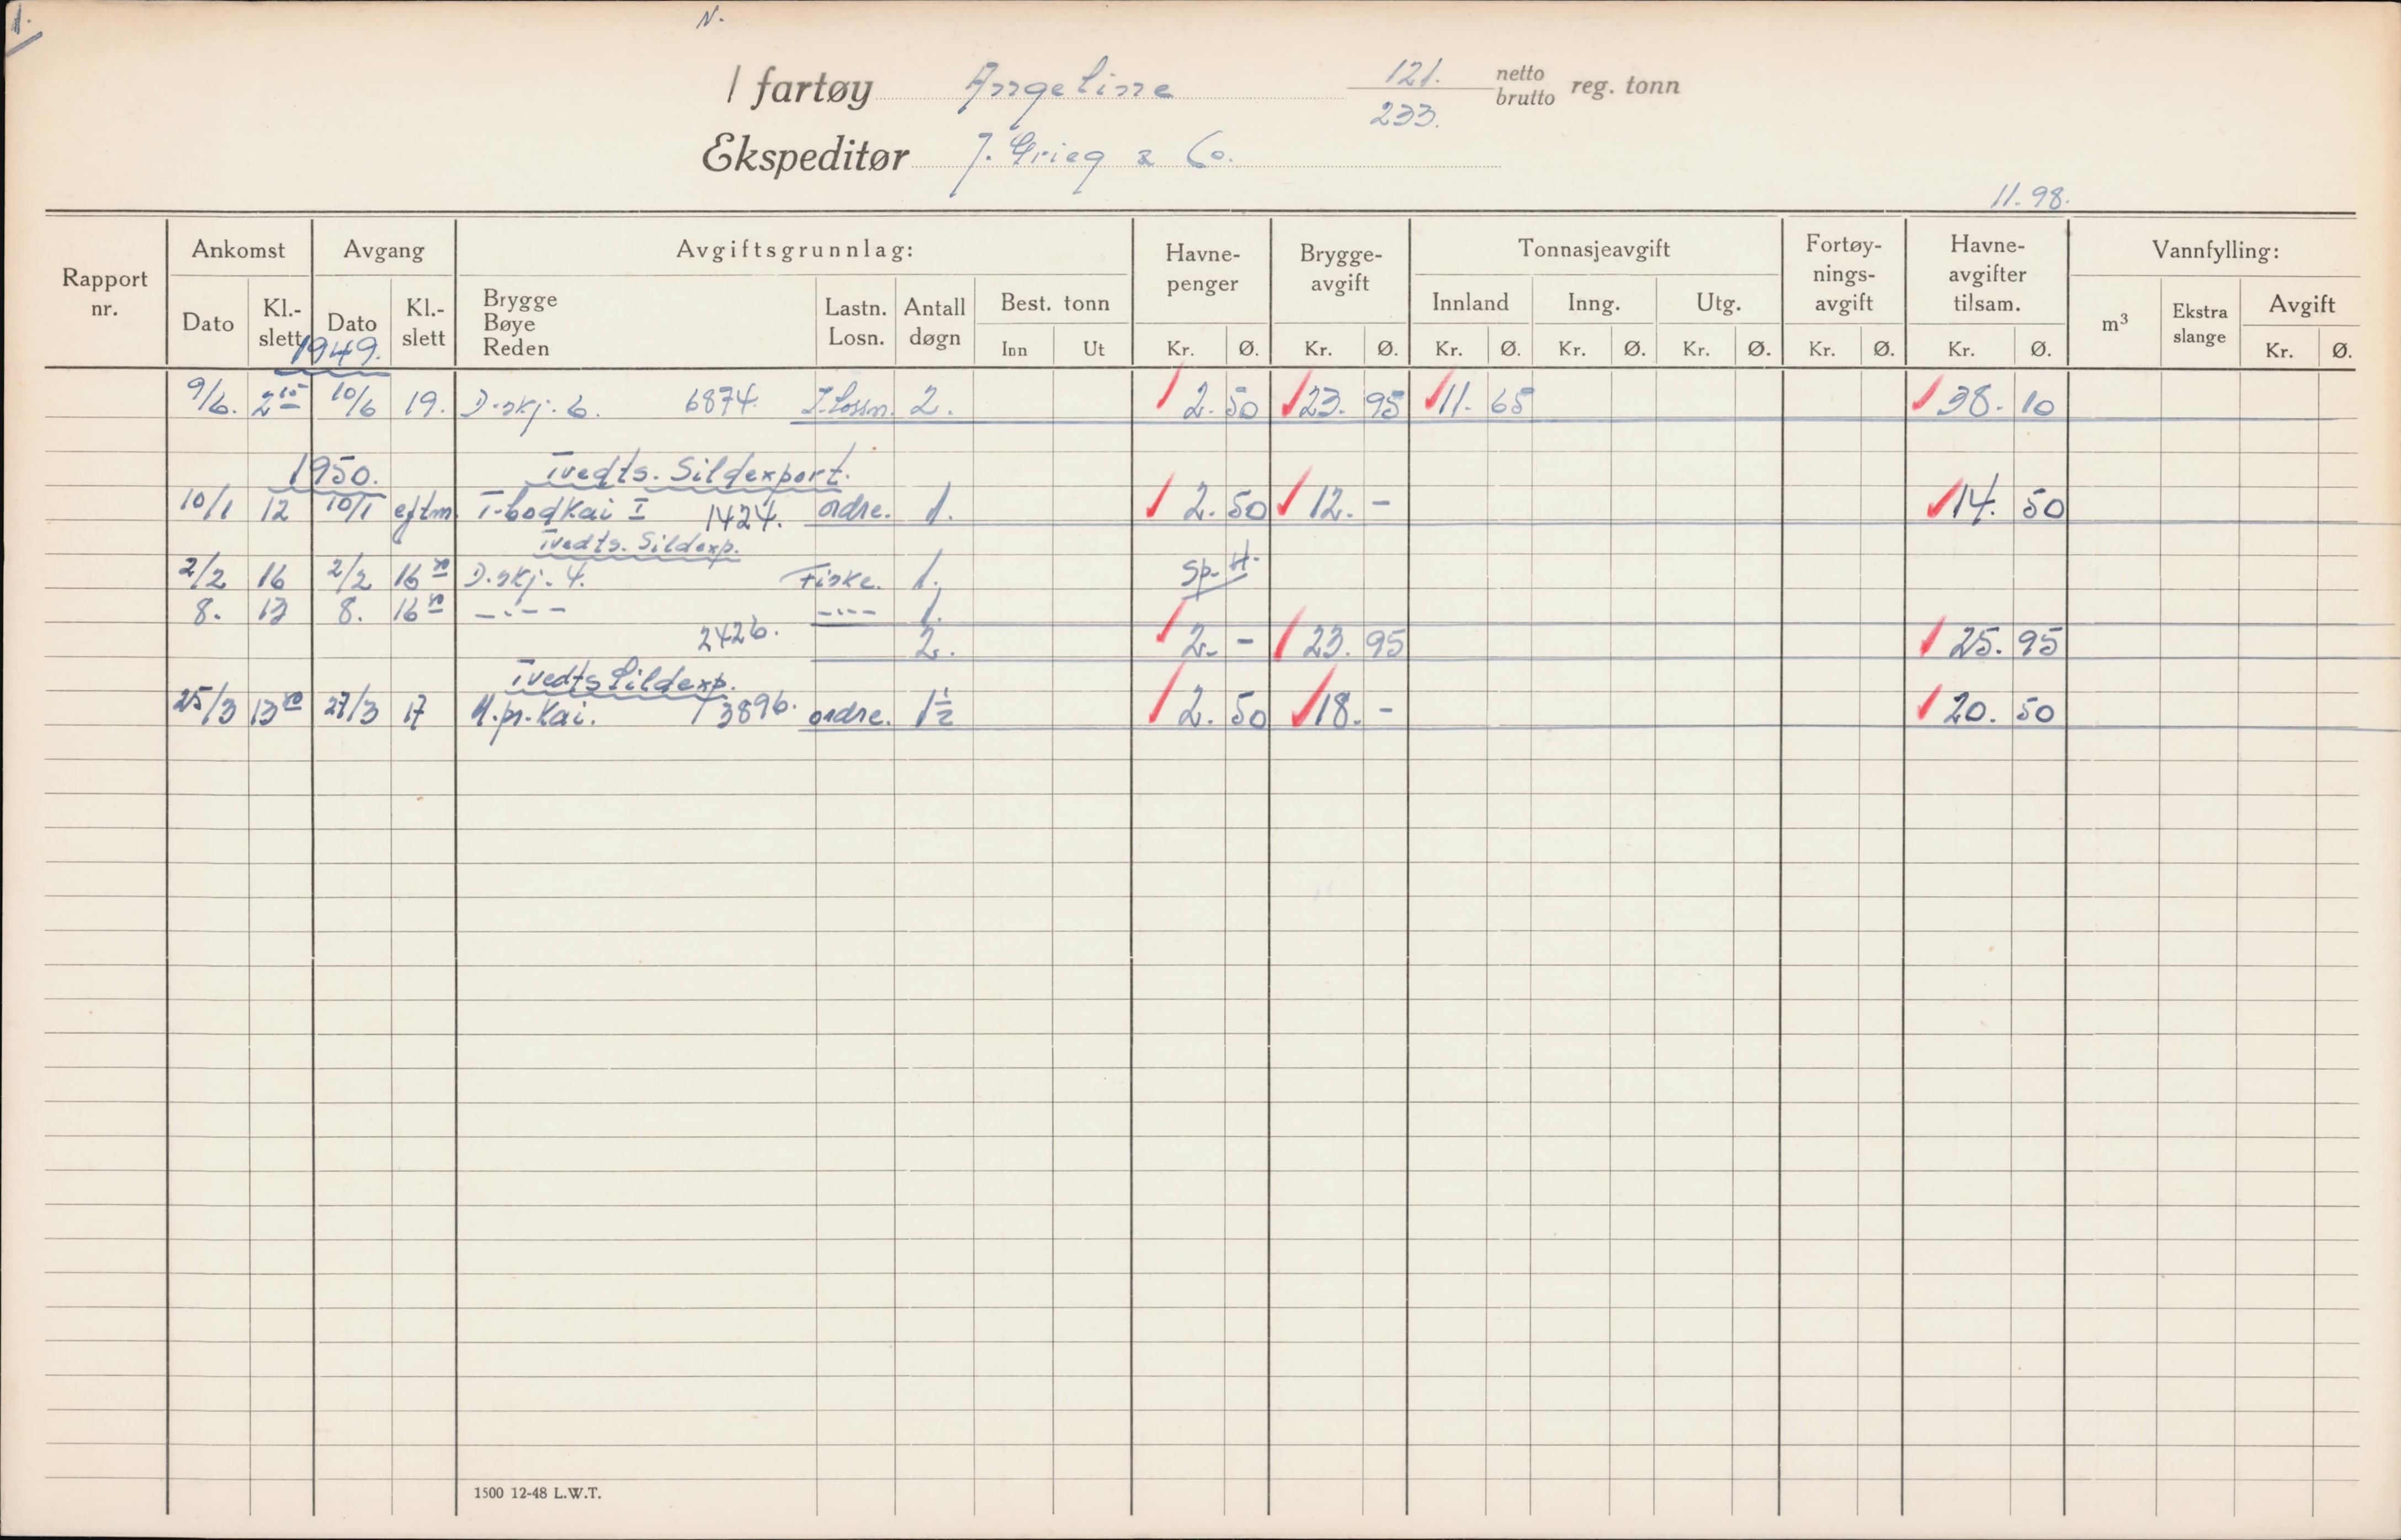 1.
N.
/ fartøy Angeline 121. netto
233. brutto reg. tonn
Ekspeditør J. Grieg & Co.
11.98.
Rapport nr. Ankomst Avgang Avgiftsgrunnlag: Havnepenger Brygge-avgift Tonnasjeavgift Fortøy-nings-avgift Havne-avgifter tilsam. Vannfylling:
Dato Kl.-slett Dato Kl.-slett Brygge Bøye Reden Lastn. Losn. Antall døgn Best. tonn Innland Inng. Utg. m³ Ekstra slange Avgift
Inn Ut Kr. Ø. Kr. Ø. Kr. Ø. Kr. Ø. Kr. Ø. Kr. Ø. Kr. Ø. Kr. Ø.
1949.
9/6. 10/6 19. D.skj. 6. 6874. 2. 2.50 23.95 11.65 38.10
1950. Tvedts. Sildexport.
10/1 12 10/1 eftm. T-bodkai I 1424. ordre. 1. 2.50 12.- 14.50
Tvedts. Sildexp.
2/2 16 2/2 16 D.skj. 4. Fiske. 1. Sp. H.
8. 13 8. 16 -"-- -"-- 1.
2426. 2. 2.- 23.95 25.95
Tvedts Sildexp.
25/3 13 27/3 17 M.pr.kai. 3896. ordre. 1½ 2.50 18.- 20.50
1500 12-48 L.W.T.